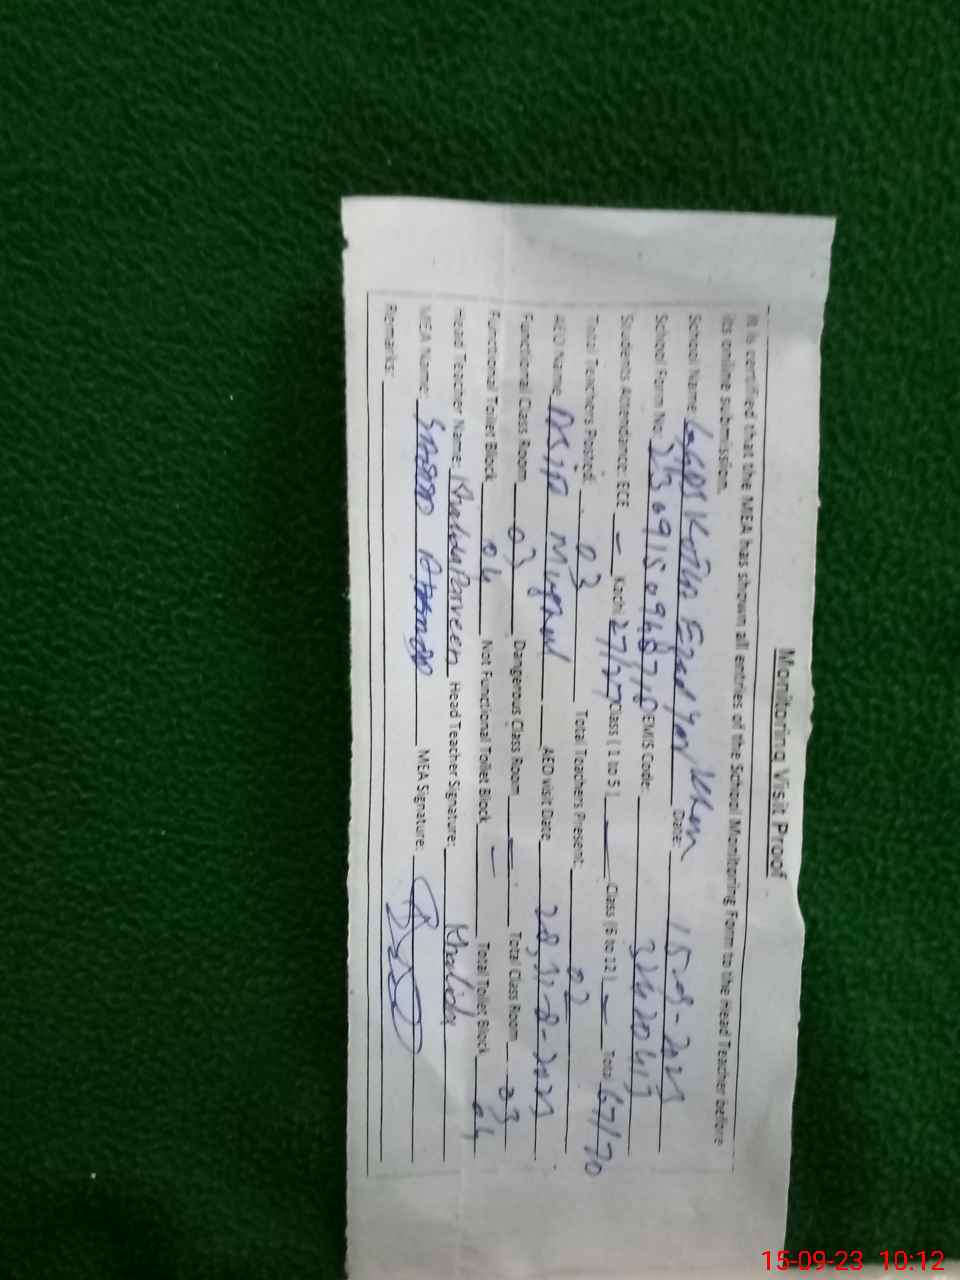 Monitoring Visit Proof
It is certified that the MEA has shown all entries of the School Monitoring Form to the Head Teacher before
its online submission.
School Name: Khan Date: 15-09-2023
School Form No: EMIS Code: 32420413
Students Attendance: ECE — Kachi 27/27 Class ( 1 to 5 ) — Class (6 to 12) — Total 67/70
Total Teachers Posted: 03 Total Teachers Present: 02
AEO Name Mughal AEO visit Date
Functional Class Room 03 Dangerous Class Room — Total Class Room 03
Functional Toilet Block 04 Not Functional Toilet Block — Total Toilet Block 04
Head Teacher Name: Khalida Parveen Head Teacher Signature: Khalida
MEA Name: MEA Signature:
Remarks:
15-09-23 10:12